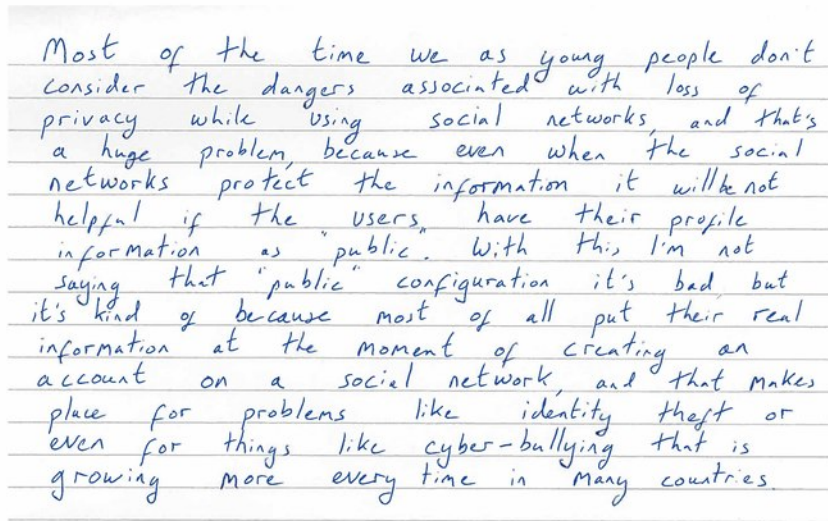 Most of the time we as young people don't
consider the dangers associated with loss of
privacy while using social networks, and that's
a huge problem, because even when the social
networks protect the information it will be not
helpful if the users, have their profile
information as "public". With this, I'm not
saying that "public" configuration it's bad but
it's kind of because most of all put their real
information at the moment of creating an
account on a social network, and that makes
place for problems like identity theft or
even for things like cyber-bullying that is
growing more every time in many countries.